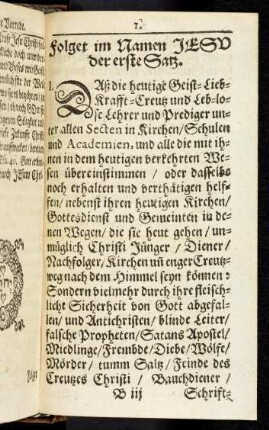 r Vorrede.
7.
Folget im Namen JESU
der erste Satz.
I. DAß die heutige Geist- Lieb-
Krafft- Creutz und Leb-lo-
se Lehrer und Prediger un-
ter allen Secten in Kirchen/ Schulen
und Academien, und alle die mit ih-
nen in dem heutigen verkehrten We-
sen übereinstimmen / oder dasselbe
noch erhalten und verthätigen helf-
fen/ nebenst ihren heutigen Kirchen/
Gottesdienst und Gemeinten in de-
nen Wegen/ die sie heut gehen / un-
müglich Christi Jünger / Diener/
Nachfolger/ Kirchen uñ enger Creutz-
weg nach dem Himmel seyn können:
Sondern vielmehr durch ihre fleisch-
lichte Sicherheit von Gott abgefal-
len/ und Antichristen/ blinde Leiter/
falsche Propheten/ Satans Apostel/
Miedlinge/ Frembde/ Diebe/ Wölfe/
Mörder/ tumm Saltz/ Feinde des
Creutzes Christi / Bauchdiener /
B iij Schrift-